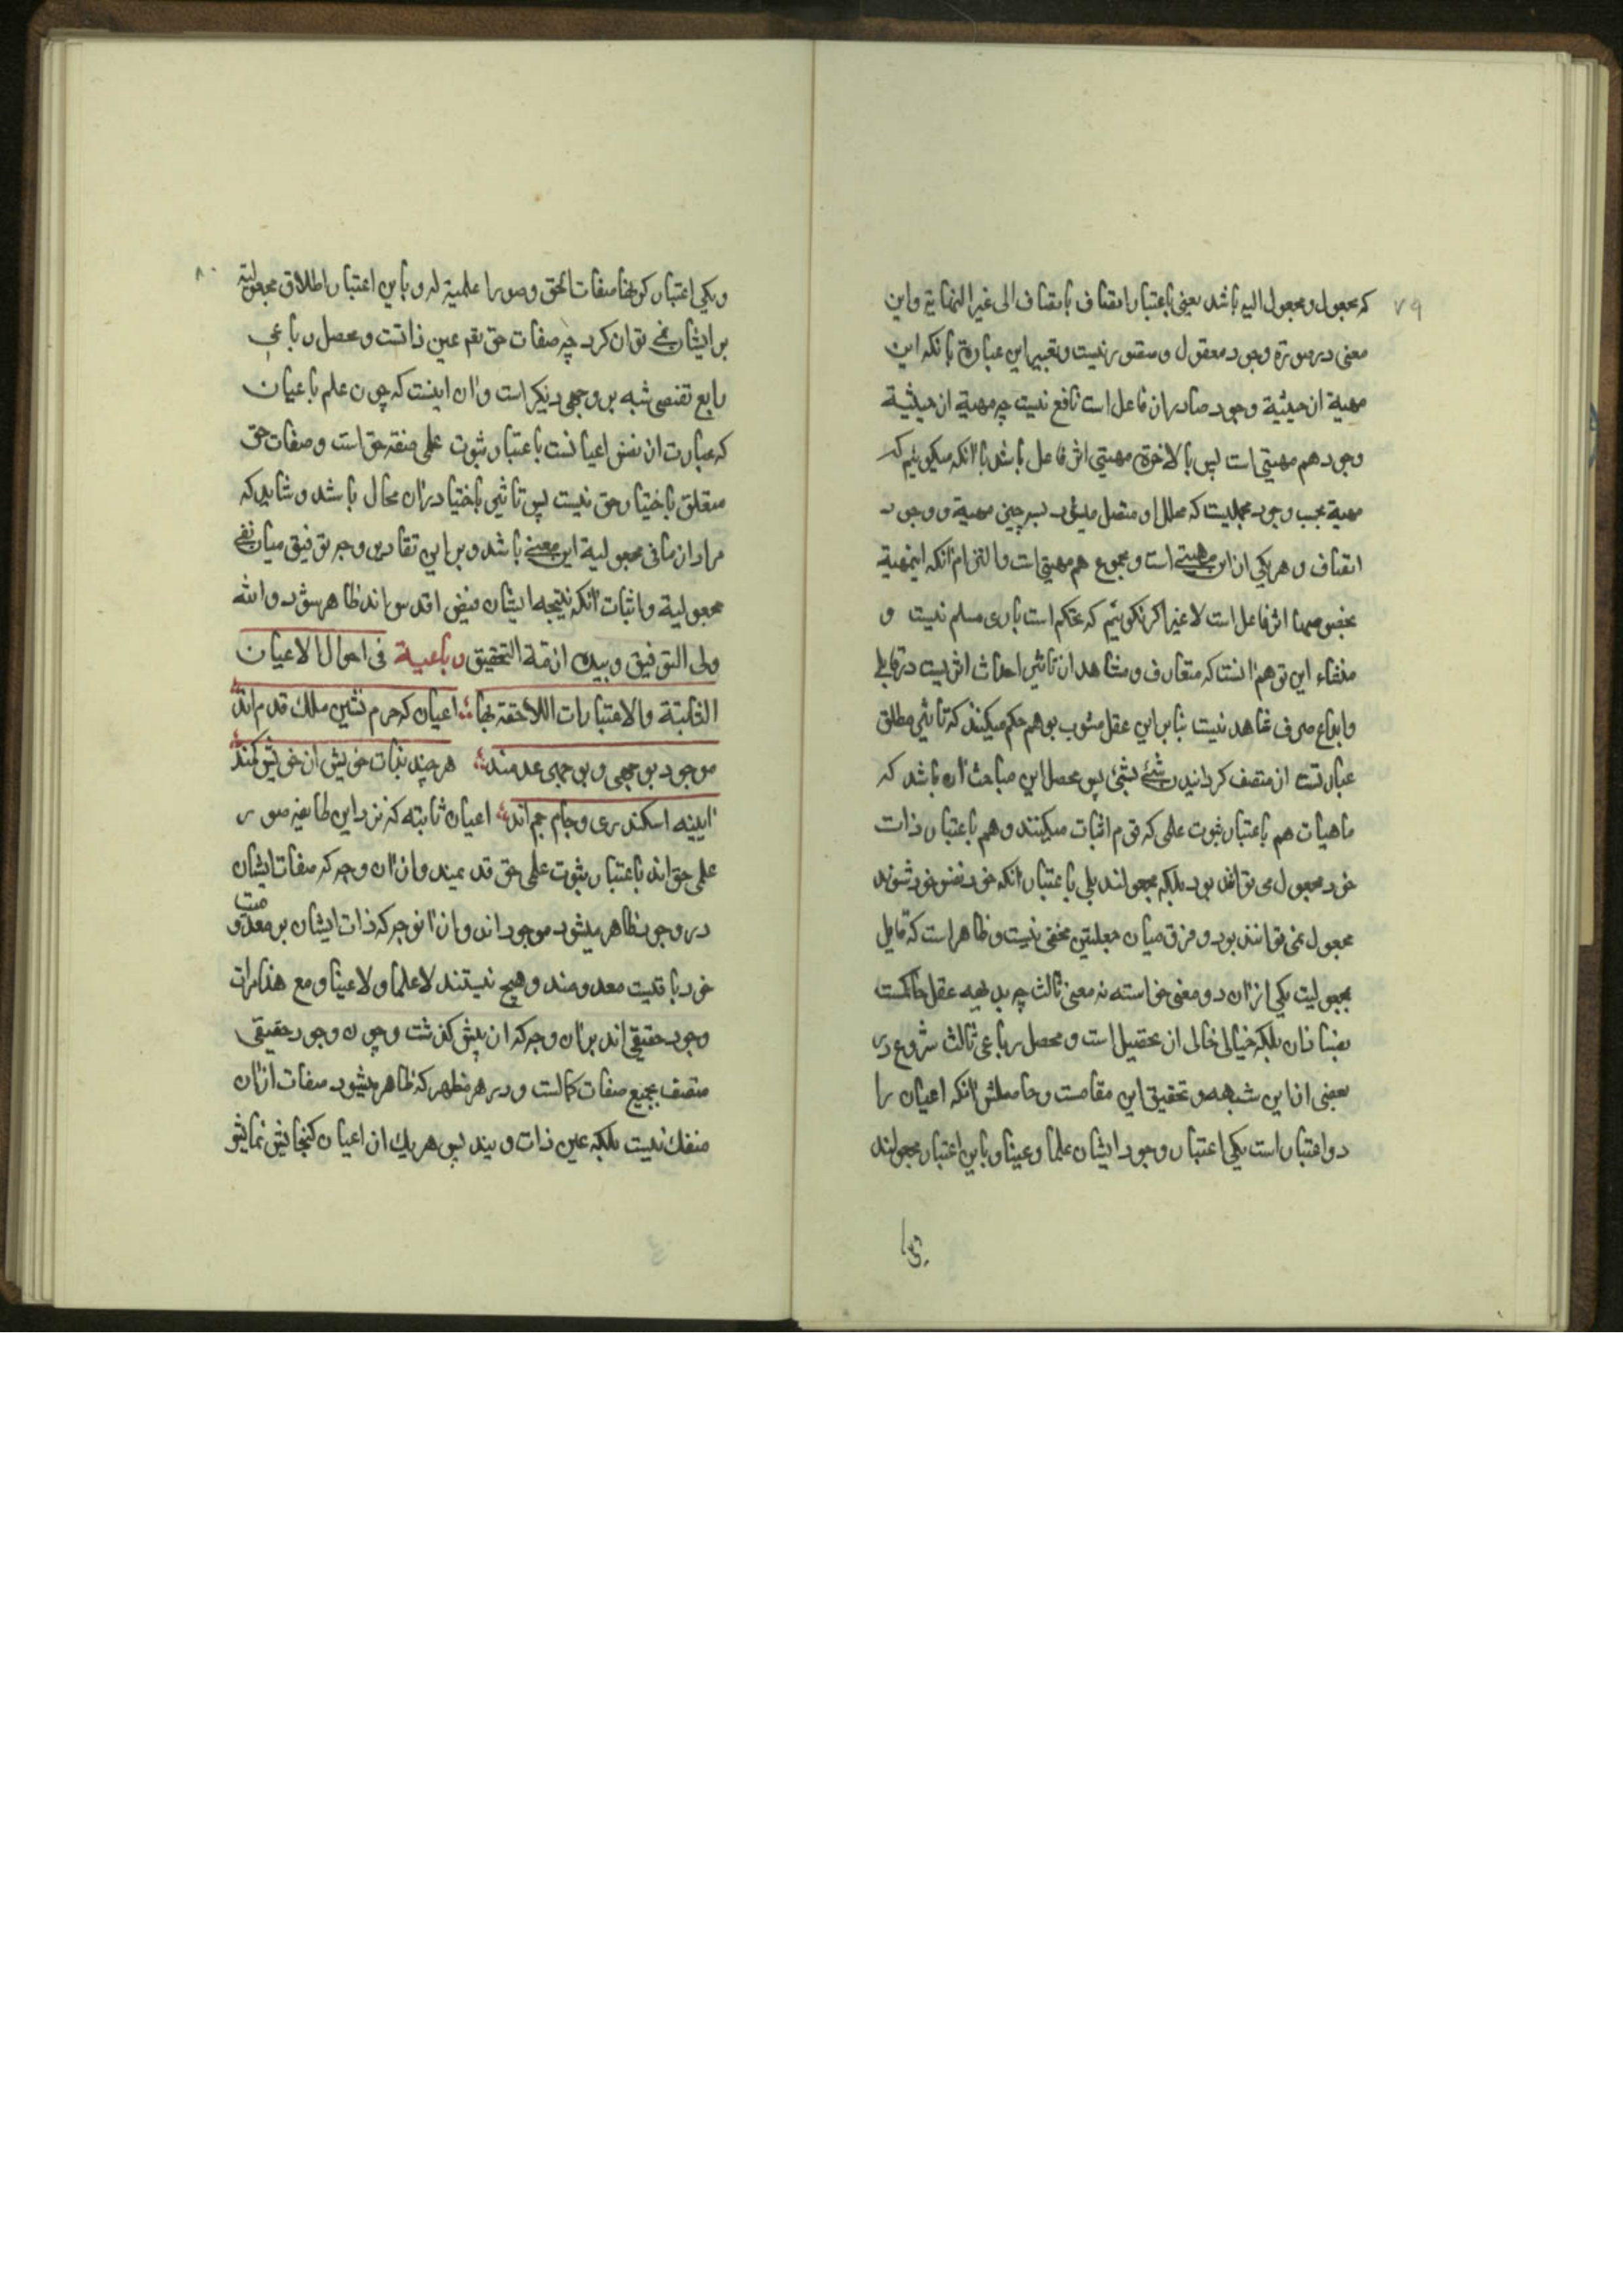 ٧٩
که مجعول و مجعول الیه باشد یعنی باعتبار اتصاف باتصاف الی غیر النهایة و این
معنی در صورة وجود معقول و متصور نیست و تعبیر این عبارة بانکه این
مهیة از حیثیة وجود صادر از فاعل است نافع نیست چه مهیة از حیثیة
وجود هم مهیتی است پس بالاخرة مهیتی اثر فاعل باشد با آنکه میکوییم که
مهیة بحسب وجود مجملیست که محلل و مفصل میشود بسه چیز مهیة و وجود
اتصاف و هر یکی ازان مهیتی است و مجموع هم مهیتی است و التزام آنکه اینمهیة
بخصوصها اثر فاعل است لاغیر اکر نکوییم که تحکم است باری مسلم نیست و
منشاء این توهم آنست که متعارف و مشاهد از تاثیر احداث اثریست در قابل
وابداع صرف مشاهد نیست بنا براین عقل مشوب بوهم حکم میکند که تاثیر مطلق
عبارتست از متصف کردانیدن شئ بشئ پس محصل این مباحث آن باشد که
ماهیات هم باعتبار ثبوت علمی که قوم اثبات میکنند و هم باعتبار ذات
خود مجعول می توانند بود بلکه مجعولند بلی باعتبار آنکه خود نفس خود شوند
مجعول نمی توانند بود و فرق میان جعلیتین مخفی نیست و ظاهر است که قایل
بمجعولیت یکی ازان دو معنی خواسته نه معنی ثالث چه بدیهه عقل حاکمست
بفساد آن بلکه خیالی خالی از تحصیل است و محصل رباعی ثالث شروع در
بعضی از این شبهه و تحقیق این مقامست و حاصلش آنکه اعیان را
دو اعتبار است یکی اعتبار وجود ایشان علما و عینا و باین اعتبار مجعولند
٨٠
و یکی اعتبار کونها صفات للحق و صورا علمیة له و باین اعتبار اطلاق مجعولیة
بر ایشان نمی توان کرد چه صفات حق تعم عین ذاتست و محصل رباعی
رابع تفصی شبه بر وجهی دیکر است و آن اینست که چون علم باعیان
که عبارت از نفس اعیانست باعتبار ثبوت علمی صفة حق است و صفات حق
متعلق باختیار حق نیست پس تاثیر باختیار دران محال باشد و شاید که
مراد از نافی مجعولیة این معنی باشد و بر این تقادیر وجه توفیق میان نفی
مجعولیة و اثبات آنکه نتیجه ایشان فیض اقدس اند ظاهر شود والله
ولی التوفیق و بیده ازمة التحقیق رباعیة فی احوال الاعیان
الثابتة والاعتبارات اللاحقة بها اعیان که حرم نشین ملک قدم اند
موجود بوجهی و بوجهی عدمند هر چند بذات خویش از خویش کمند
آیینه اسکندری و جام جم اند اعیان ثابته که نزد این طایفه صور
علمی حق اند باعتبار ثبوت علمی حق قدیمند و از آن وجه که صفات ایشان
در وجود ظاهر میشود موجود اند و از آنوجه که ذات ایشان بر معدومیت
خود باقیست معدومند و هیچ نیستند لا علما و لا عینا و مع هذا مرات
وجود حقیقی اند بران وجه که از پیش کذشت و چون وجود حقیقی
متصف بجمیع صفات کمالست و در هر مظهر که ظاهر میشود صفات ازان
منفک نیست بلکه عین ذات ویند پس هر یک از اعیان کنجایش نمایش